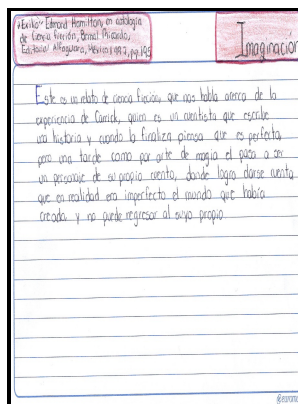 "Exilio" Edmond Hamilton, en antología
de Ciencia ficción, Bernal Picardo,
Editorial Alfaguara, México 1997, pg.195
Imaginación
Este es un relato de ciencia ficción, que nos habla acerca de la
experiencia de Carrick, quien es un cuentista que escribe
una historia y cuando la finaliza piensa que es perfecta,
pero una tarde como por arte de magia el pasa a ser
un personaje de su propio cuento, donde logra darse cuenta
que en realidad era imperfecto el mundo que había
creado y no puede regresar al suyo propio